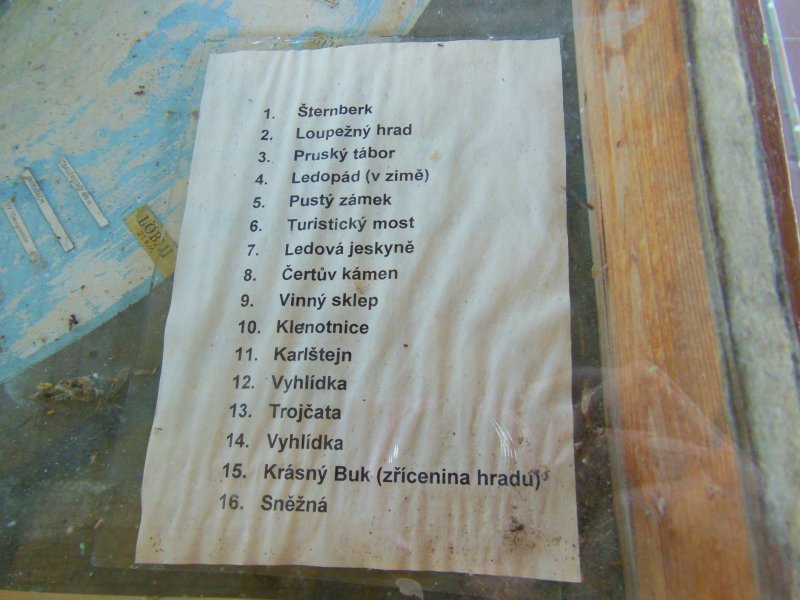 1. Šternberk
2. Loupežný hrad
3. Pruský tábor
4. Ledopád (v zimě)
5. Pustý zámek
6. Turistický most
7. Ledová jeskyně
8. Čertův kámen
9. Vinný sklep
10. Klenotnice
11. Karlštejn
12. Vyhlídka
13. Trojčata
14. Vyhlídka
15. Krásný Buk (zřícenina hradu)
16. Sněžná
LÖBIJ